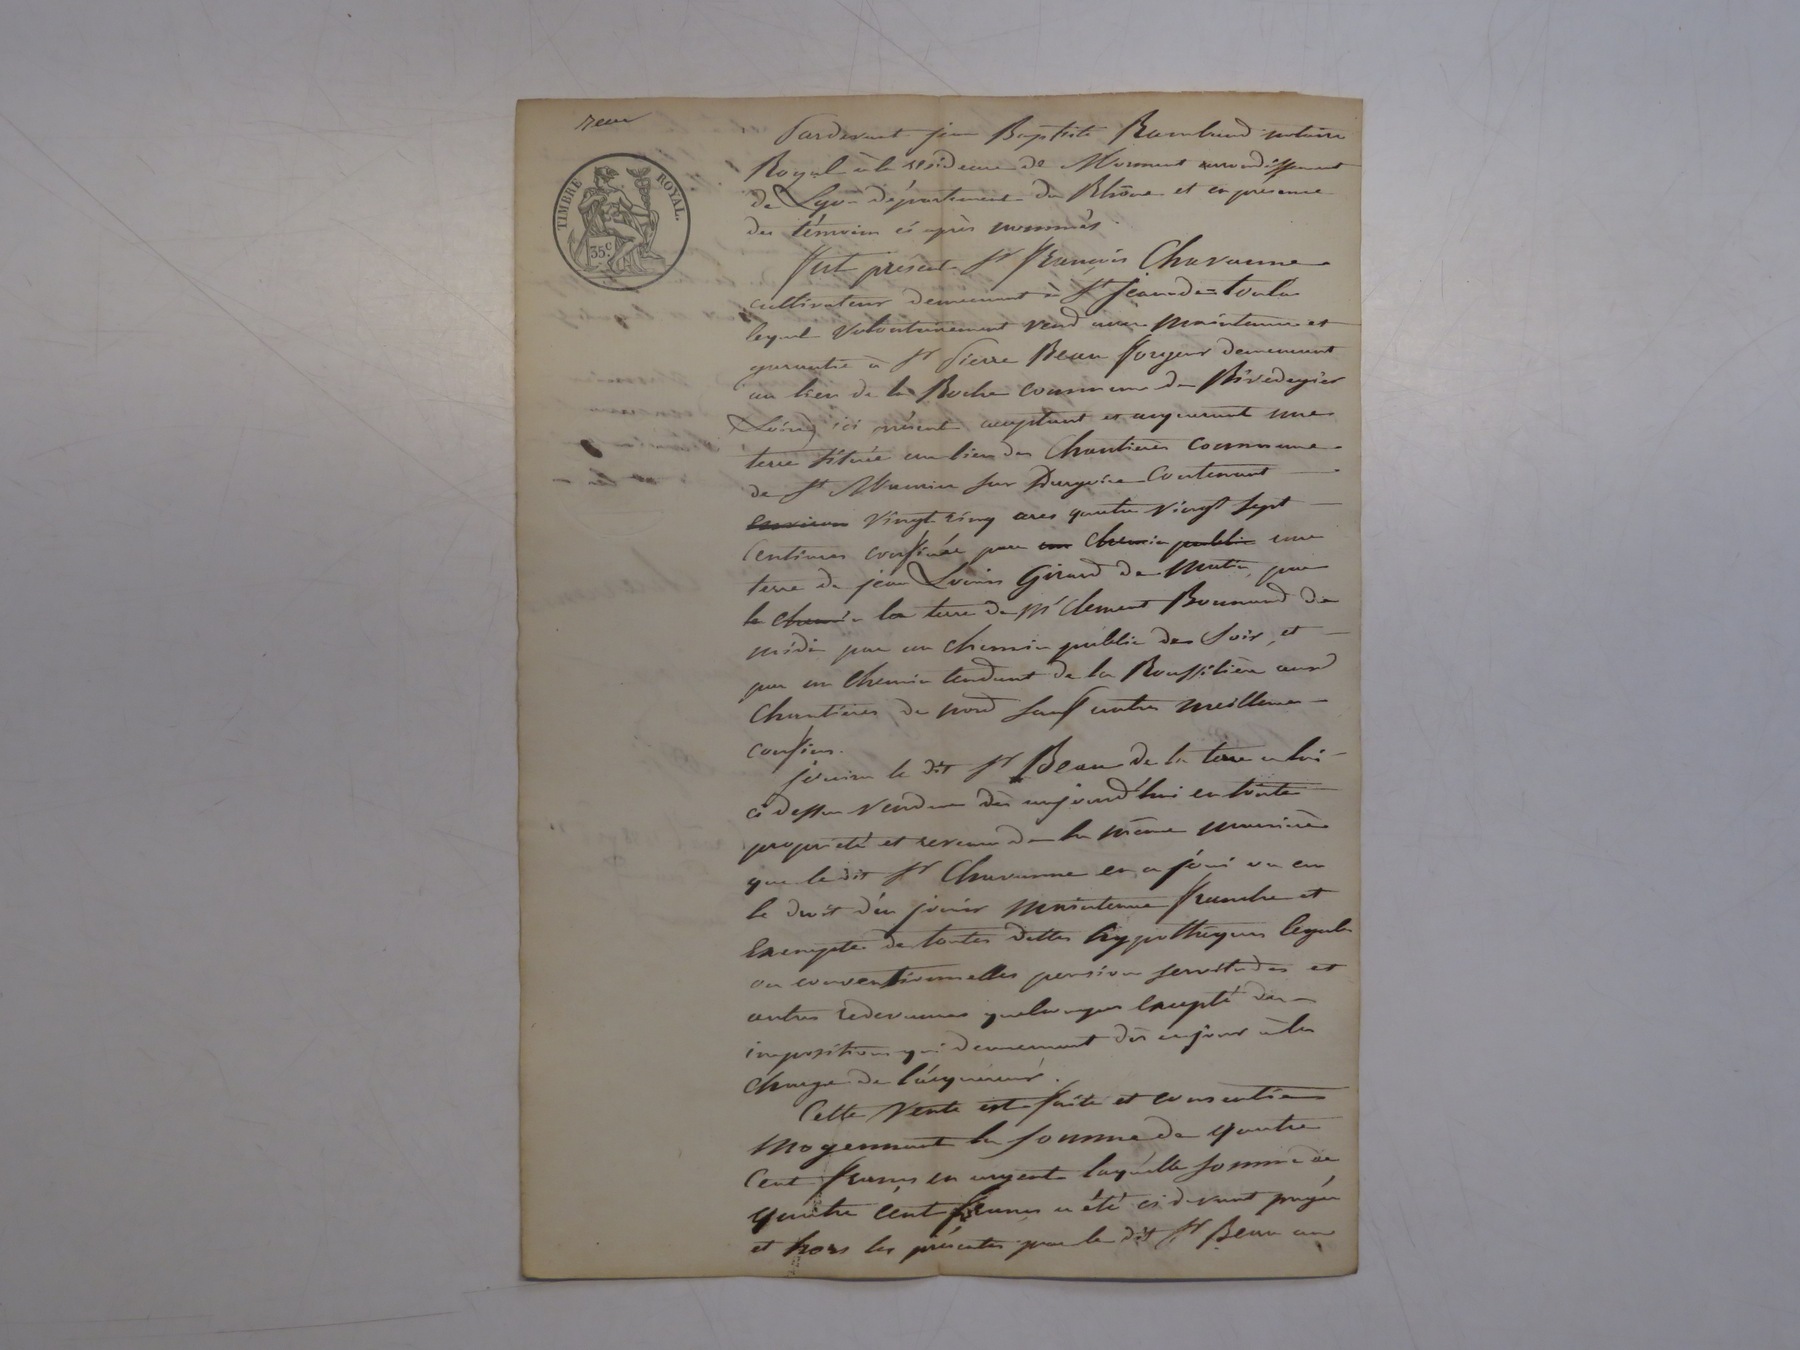 TIMBRE ROYAL.
35 c.
Pardevant jean Baptiste Rambaud notaire
Royal à la résidence de Mornant arrondissement
de Lyon département du Rhône et en presence
des témoins ci après nommés
fut présent Sr françois Chavanne
cultivateur demeurant à St jean de toulas
lequel volontairement vend avec maintenue et
garantie à Sr Pierre Bean forgeur demeurant
au lieu de la Roche commune de Rivedegier
Loire ici présent acceptant et acquerant une
terre située au lieu des Chantières commune
de St Maurice sur Dargoire Contenant
environ vingt cinq ares quatre vingt sept
Centiares confinée par un chemin public une
terre de jean Louis Girard de matin, par
le chemin la terre de Mr Clement Bonnard de
midi par un chemin public de Soir, et
par un Chemin tendant de la Roussilière aux
Chantières de nord sauf autres meilleurs
confins.
Jouira le dit Sr Bean de la terre a lui
ci dessus vendue dès aujourd'hui en toute
propriété et revenu de la même manière
que le dit Sr Chavanne en a joui ou eu
le droit d'en jouir maintenue franche et
Exempte de toutes dettes hypothèques legales
ou conventionnelles pension servitudes et
autres redevances quelconques Excepté des
impositions qui demeurent dès ce jour à la
charge de l'acquéreur.
Cette Vente est faite et consentie
moyennant la somme de quatre
Cent francs en argent laquelle somme de
quatre cent francs a été ci devant payée
et hors les présentes par le dit Sr Bean au